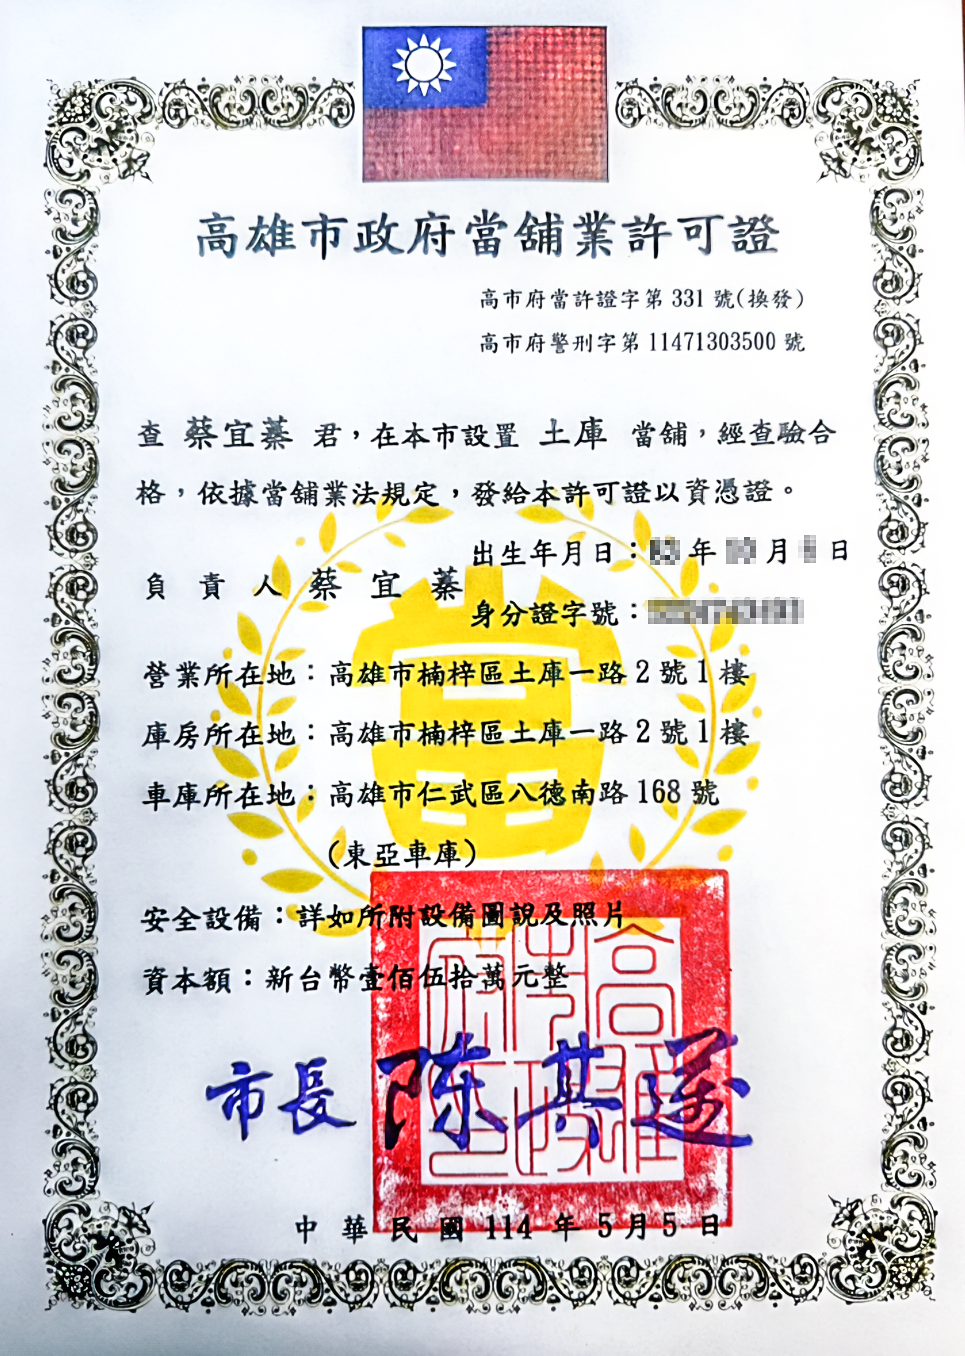 高雄市政府當舖業許可證
高市府當許證字第 331 號(換發)
高市府警刑字第 11471303500 號
查 蔡宜蓁 君，在本市設置 土庫 當舖，經查驗合
格，依據當舖業法規定，發給本許可證以資憑證。
出生年月日： 年 月 日
負責人 蔡宜蓁
身分證字號：
營業所在地：高雄市楠梓區土庫一路 2 號 1 樓
庫房所在地：高雄市楠梓區土庫一路 2 號 1 樓
車庫所在地：高雄市仁武區八德南路 168 號
(東亞車庫)
安全設備：詳如所附設備圖說及照片
資本額：新台幣壹佰伍拾萬元整
市長 陳其邁
中華民國 114 年 5 月 5 日
當
高雄市政府印